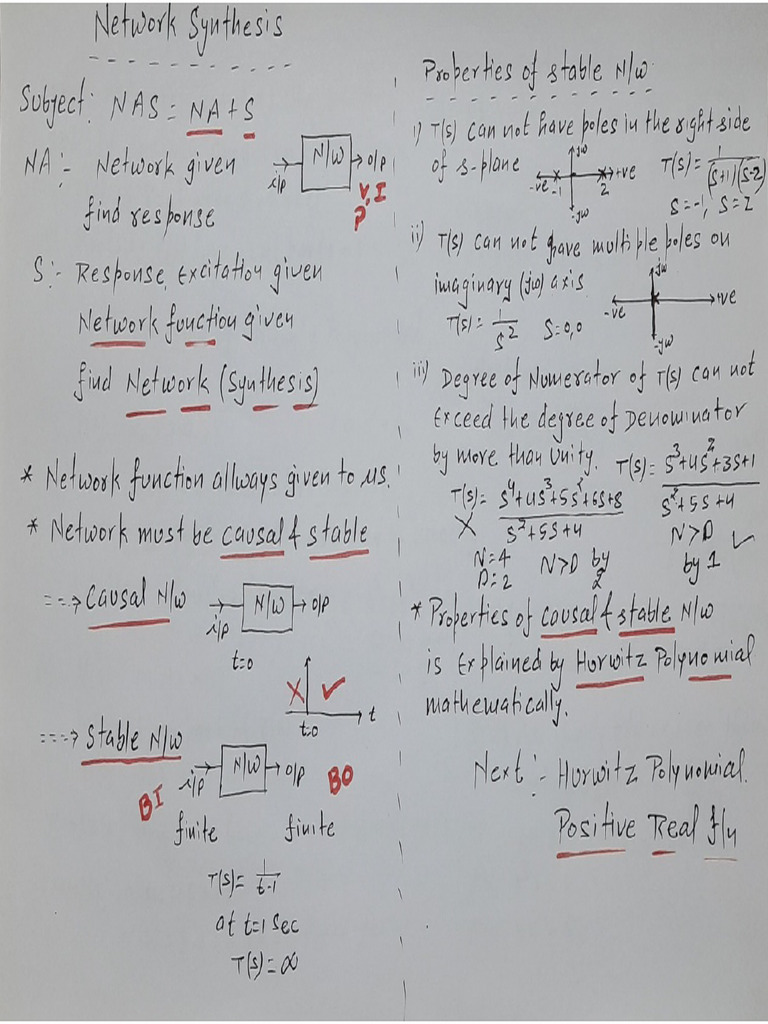 Network Synthesis
Subject: NAS = NA + S
NA :- Network given
find response
i/p N/W o/p
V, I
P
S :- Response, Excitation given
Network function given
find Network (Synthesis)
* Network function allways given to us.
* Network must be causal & stable
==> Causal N/W
i/p N/W o/p
t=0
X ✓
t=0 t
===> Stable N/W
i/p N/W o/p
BI BO
finite finite
T(s) = 1/(t-1)
at t=1 sec
T(s) = ∞
Properties of stable N/W
i) T(s) can not have poles in the right side
of s-plane
jw
-ve -1 2 +ve
-jw
T(s) = 1/((s+1)(s-2))
s=-1, s=2
ii) T(s) can not have multiple poles on
imaginary (jw) axis
T(s) = 1/s² s=0,0
jw
-ve +ve
-jw
iii) Degree of Numerator of T(s) can not
Exceed the degree of Denominator
by more than Unity.
T(s) = (s³+4s²+3s+1)/(s²+5s+4)
N>D ✓
by 1
T(s) = (s⁴+4s³+5s²+6s+8)/(s²+5s+4)
X
N=4 N>D by
D=2 2
* Properties of causal & stable N/W
is Explained by Hurwitz Polynomial
mathematically.
Next :- Hurwitz Polynomial.
Positive Real f/n